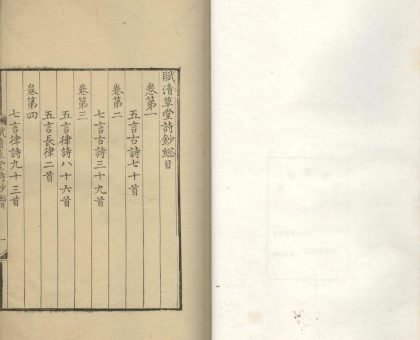 賦清草堂詩鈔總目
卷第一
五言古詩七十首
卷第二
七言古詩三十九首
卷第三
五言律詩八十六首
五言長律二首
卷第四
七言律詩九十三首